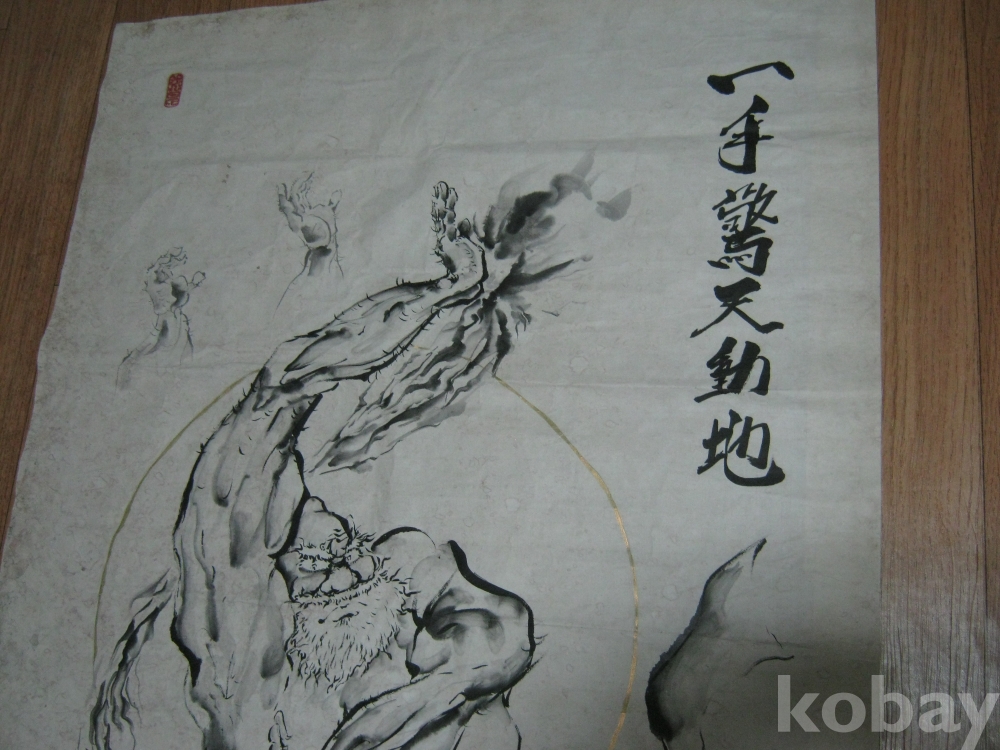 一手驚天動地
kobay